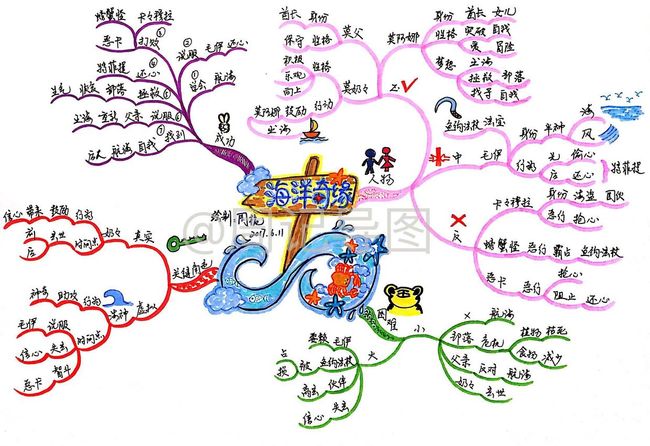 海洋奇缘
绘制:周悦
2017.6.11
人物
正
莫阿娜
身份
酋长 女儿
性格
突破 自我
爱 冒险
梦想
出海
拯救 部落
找寻 自我
莫父
身份 酋长
性格 保守
莫奶奶
性格
积极
乐观
向上
行动 鼓励 莫阿娜
出海
中
毛伊
法宝 鱼钩法杖
身份 半神
海
风
行为
先 偷心
后 还心
特菲提
反
卡々穆拉
身份 海盗 团伙
恶行 抢心
螃蟹怪 恶行 霸占 鱼钩法杖
恶卡 恶行
抢心
阻止 还心
困难
小
航海
部落 危机
植物 枯死
食物 减少
父亲 反对 航海
奶々 去世
大
毛伊
鱼钩法杖 被
占
损
伙伴 离去
失去 信心
关键角色
真实
奶々
行为 鼓励 带来 信心
时间点
前
去世 后
虚拟
海神
行为 助攻 神奇
时间点
说服 毛伊
失去 信心
智斗 恶卡
成功
学会 航海
说服 毛伊 还心
打败
卡々穆拉
螃蟹怪
恶卡
还心 特菲提
拯救 部落 恢复 生气
说服 父亲 重新 出海
找到 自我